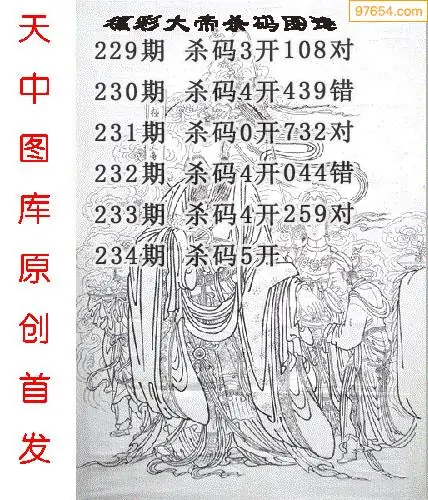 97654.com
福彩大帝杀码图迷
229期 杀码3开108对
230期 杀码4开439错
231期 杀码0开732对
232期 杀码4开044错
233期 杀码4开259对
234期 杀码5开
天中图库原创首发